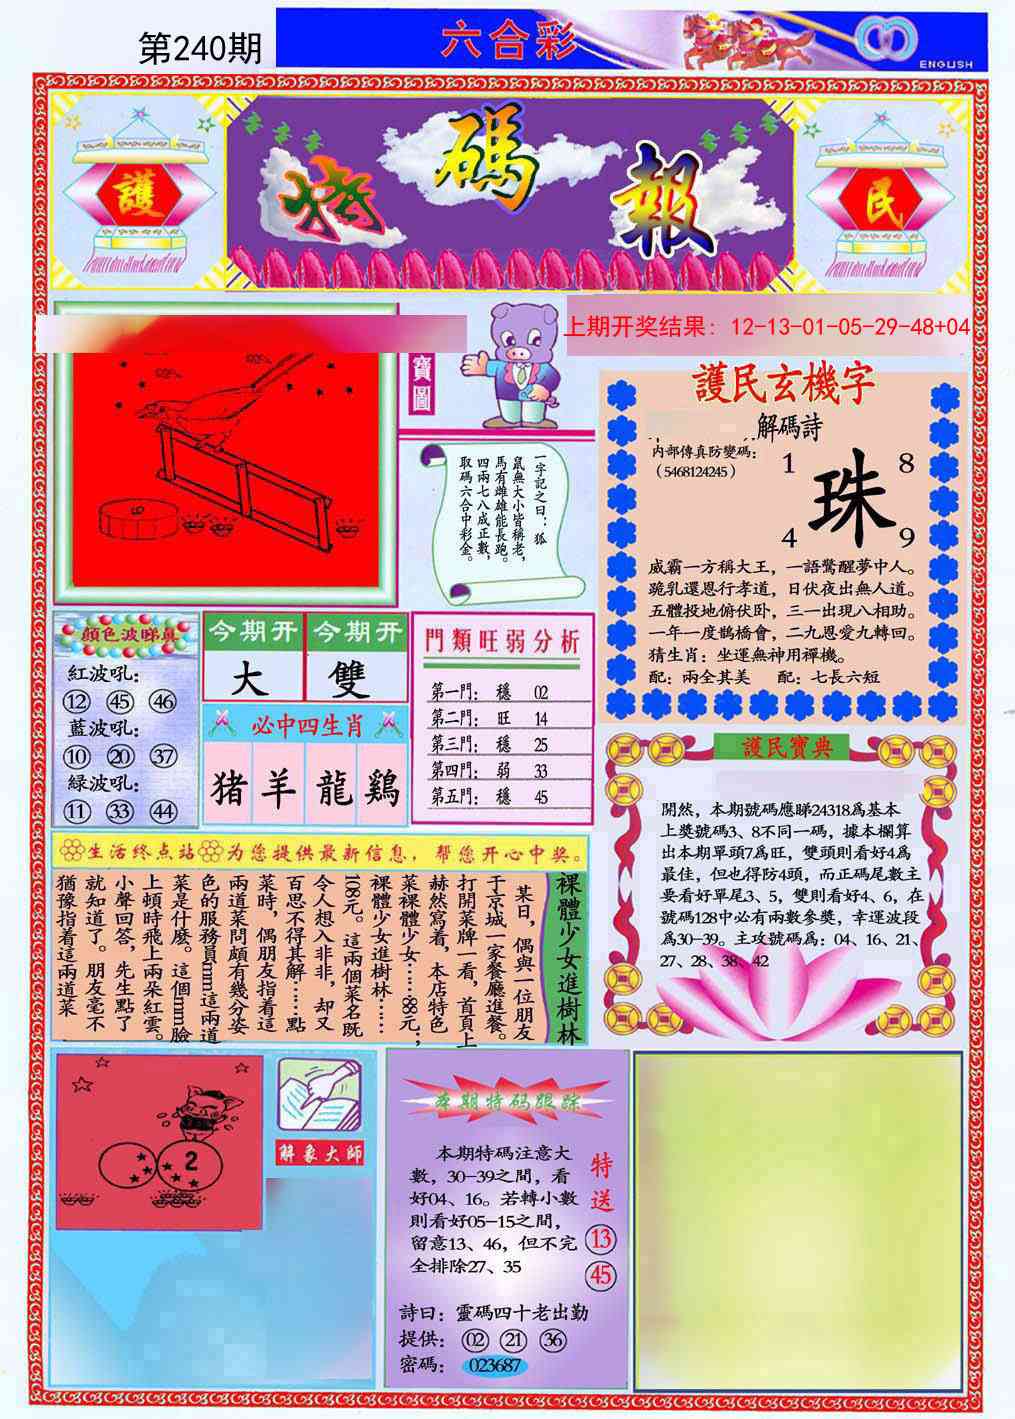 第240期
六合彩
ENGLISH
護
特碼報
民
上期开奖结果：12-13-01-05-29-48+04
寶圖
一字記之曰：狐
鼠無大小皆稱老，
馬有雌雄能長跑。
四兩七八成正數，
取碼六合中彩金。
護民玄機字
解碼詩
内部傳真防變碼：
（5468124245）
1
8
珠
4
9
威霸一方稱大王，一語驚醒夢中人。
跪乳還恩行孝道，日伏夜出無人道。
五體投地俯伏卧，三一出現八相助。
一年一度鵲橋會，二九恩愛九轉回。
猜生肖：坐運無神用禪機。
配：兩全其美 配：七長六短
顔色波睇真
紅波吼：
12 45 46
藍波吼：
10 20 37
緑波吼：
11 33 44
今期开 今期开
大 雙
必中四生肖
猪 羊 龍 鷄
門類旺弱分析
第一門： 穩 02
第二門： 旺 14
第三門： 穩 25
第四門： 弱 33
第五門： 穩 45
護民寶典
開然，本期號碼應睇24318爲基本
上獎號碼3、8不同一碼，據本欄算
出本期單頭7爲旺，雙頭則看好4爲
最佳，但也得防4頭，而正碼尾數主
要看好單尾3、5，雙則看好4、6，在
號碼128中必有兩數參獎，幸運波段
爲30-39。主攻號碼爲：04、16、21、
27、28、38、42
生活终点站 为您提供最新信息，帮您开心中奖。
裸體少女進樹林
某日，偶與一位朋友
于京城一家餐廳進餐。
打開菜牌一看，首頁上
赫然寫着，本店特色
菜裸體少女……88元；
裸體少女進樹林……
108元。這兩個菜名既
令人想入非非，却又
百思不得其解……點
菜時，偶朋友指着這
兩道菜問頗有幾分姿
色的服務員mm這兩道
菜是什麽。這個mm臉
上頓時飛上兩朵紅雲。
小聲回答，先生點了
就知道了。朋友毫不
猶豫指着這兩道菜
2
解象大師
本期特码跟踪
本期特碼注意大
數，30-39之間，看
好04、16。若轉小數
則看好05-15之間，
留意13、46，但不完
全排除27、35
特送
13
45
詩曰：靈碼四十老出勤
提供： 02 21 36
密碼： 023687